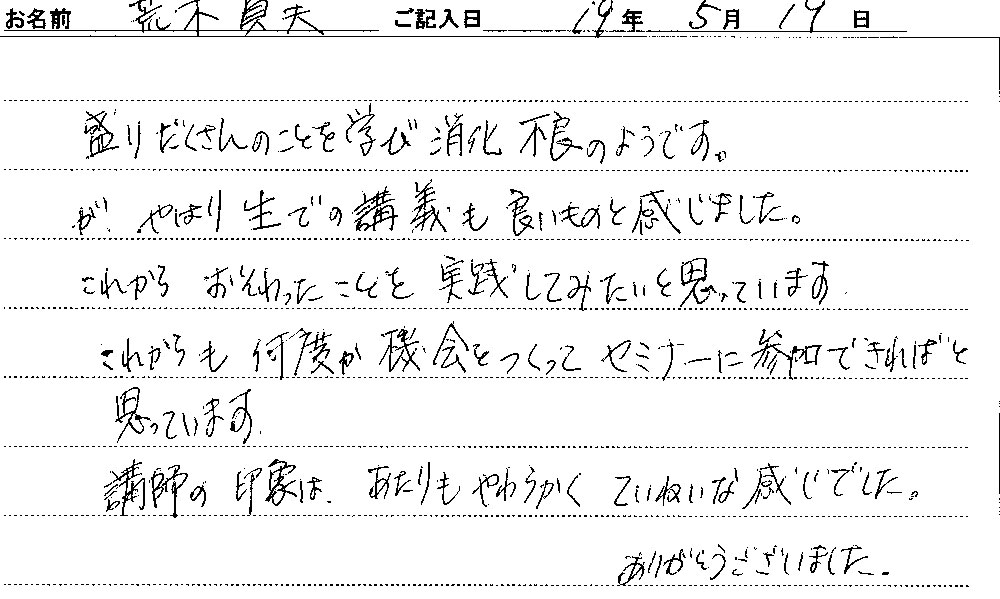 お名前 荒木貞夫 ご記入日 19年 5月 19日
盛りだくさんのことを学び 消化不良のようです。
が、やはり生での講義も良いものと感じました。
これから おそわったことを実践してみたいと思っています.
これからも 何度か機会をつくって セミナーに参加できればと
思っています.
講師の印象は、あたりもやわらかく ていねいな感じでした。
ありがとうございました.